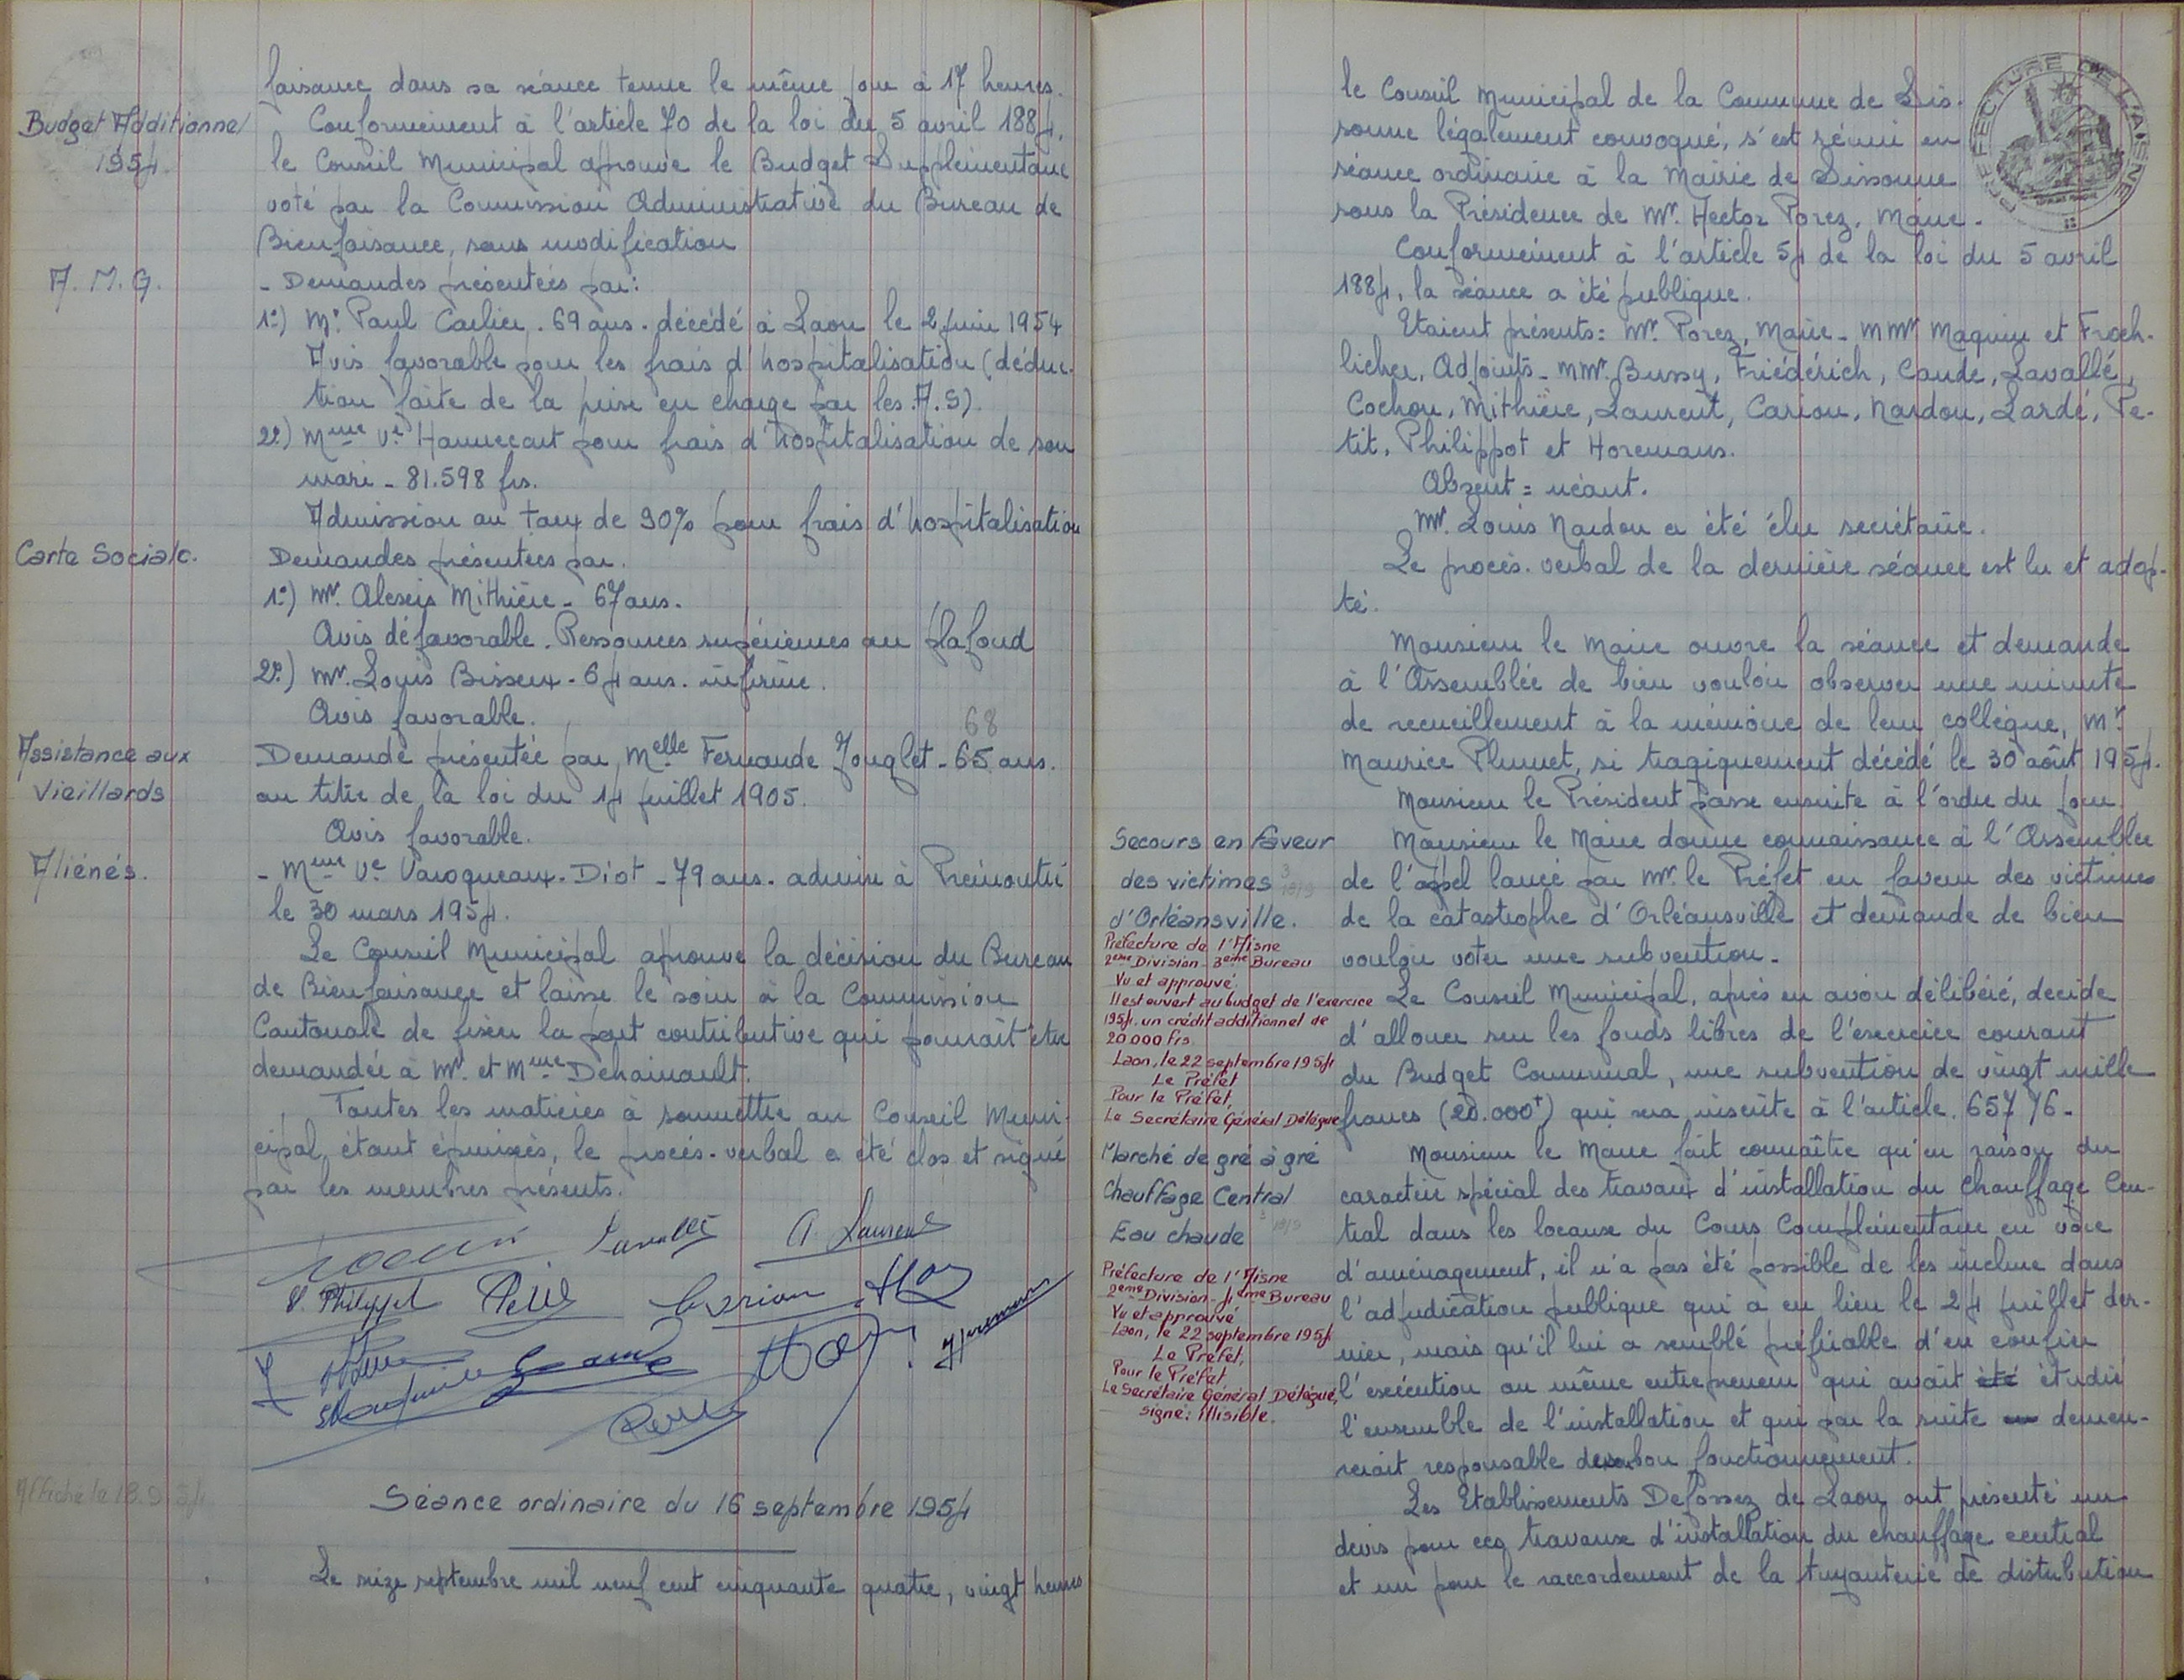 faisance dans sa séance tenue le même jour à 17 heures.
Budget Additionnel
1954.
Conformément à l'article 70 de la loi du 5 avril 1884,
le Conseil Municipal aprouve le Budget Supplémentaire
voté par la Commission Administrative du Bureau de
Bienfaisance, sans modification
A. M. G.
- Demandes présentées par:
1°) Mr. Paul Carlier. 69 ans. décédé à Laon le 2 juin 1954
Avis favorable pour les frais d'hospitalisation (déduc-
tion faite de la prise en charge par les A.S).
2°) Mme Ve Hannecart pour frais d'hospitalisation de son
mari - 81.598 frs.
Admission au taux de 90% pour frais d'hospitalisation
Carte Sociale.
Demandes présentées par.
1°) Mr. Alexis Mithière - 67 ans.
Avis défavorable. Ressources supérieures au plafond
2°) Mr. Louis Bisseux - 64 ans. infirme.
Avis favorable.
68
Assistance aux
Vieillards
Demande présentée par Melle Fernande Jouglet - 65 ans.
au titre de la loi du 14 juillet 1905.
Avis favorable.
Aliénés.
- Mme Ve Varoqueaux-Diot - 79 ans. admise à Prémontré
le 30 mars 1954.
Le Conseil Municipal aprouve la décision du Bureau
de Bienfaisance et laisse le soin à la Commission
Cantonale de fixer la part contributive qui pourrait être
demandée à Mr. et Mme Dehainault.
Toutes les matières à soumettre au Conseil Muni-
cipal, étant épuisées, le procès-verbal a été clos et signé
par les membres présents.
Lavallé A. Laurent
V. Philippot Petit Carion
Horemans
Affiché le 18.9.54
Séance ordinaire du 16 septembre 1954
Le seize septembre mil neuf cent cinquante quatre, vingt heures
PREFECTURE DE L'AISNE
le Conseil Municipal de la Commune de Sis-
sonne légalement convoqué, s'est réuni en
séance ordinaire à la Mairie de Sissonne
sous la Présidence de Mr. Hector Porez, Maire.
Conformément à l'article 54 de la loi du 5 avril
1884, la séance a été publique.
Etaient présents: Mr. Porez, Maire - MMrs Maquin et Froeh-
licher, Adjoints - MMr. Bussy, Friédérich, Caude, Lavallé,
Cochon, Mithière, Laurent, Carion, Nardon, Lardé, Pe-
tit, Philippot et Horemans.
Absent = néant.
Mr. Louis Nardon a été élu secrétaire.
Le procès-verbal de la dernière séance est lu et adop-
té.
Monsieur le Maire ouvre la séance et demande
à l'Assemblée de bien vouloir observer une minute
de recueillement à la mémoire de leur collègue, Mr
Maurice Plumet, si tragiquement décédé le 30 août 1954.
Monsieur le Président passe ensuite à l'ordre du jour.
Secours en faveur
des victimes
d'Orléansville.
Monsieur le Maire donne connaissance à l'Assemblée
de l'appel lancé par Mr. le Préfet en faveur des victimes
de la catastrophe d'Orléansville et demande de bien
vouloir voter une subvention.
Préfecture de l'Aisne
2ème Division - 3ème Bureau
Vu et approuvé
Il est ouvert au budget de l'exercice
1954, un crédit additionnel de
20.000 frs.
Laon, le 22 septembre 1954
Le Préfet
Pour le Préfet,
Le Secrétaire Général Délégué
Le Conseil Municipal, après en avoir délibéré, décide
d'allouer sur les fonds libres de l'exercice courant
du Budget Communal, une subvention de vingt mille
francs (20.000f) qui sera inscrite à l'article. 657 76.
Marché de gré à gré
Chauffage Central
Eau chaude
Monsieur le Maire fait connaître qu'en raison du
caractère spécial des travaux d'installation du Chauffage Cen-
tral dans les locaux du Cours Complémentaire en voie
d'aménagement, il n'a pas été possible de les inclure dans
l'adjudication publique qui a eu lieu le 24 juillet der-
nier, mais qu'il lui a semblé préférable d'en confier
l'exécution au même entrepreneur qui avait été étudié
l'ensemble de l'installation et qui par la suite demeu-
rerait responsable de son bon fonctionnement.
Préfecture de l'Aisne
2ème Division - 4ème Bureau
Vu et approuvé
Laon, le 22 septembre 1954
Le Préfet,
Pour le Préfet,
Le Secrétaire Général Délégué,
signé: illisible.
Les Etablissements Defossez de Laon ont présenté un
devis pour ces travaux d'installation du chauffage central
et un pour le raccordement de la tuyauterie de distribution